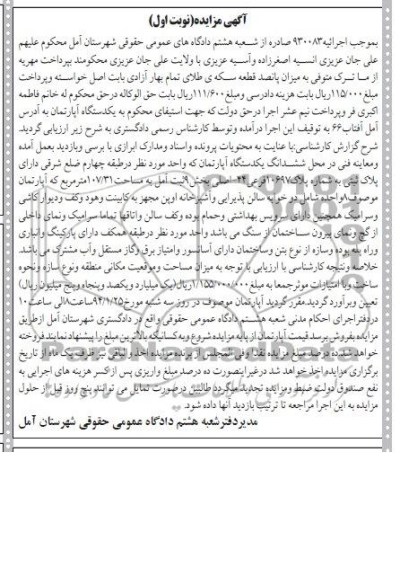 آگهی مزایده(نوبت اول)
بموجب اجرائیه۹۳۰۰۸۳ صادره از شعبه هشتم دادگاه های عمومی حقوقی شهرستان آمل محکوم علیهم
علی جان عزیزی انسیه اصغرزاده وآسیه عزیزی با ولایت علی جان عزیزی محکومند بپرداخت مهریه
از ما ترک متوفی به میزان پانصد قطعه سکه ی طلای تمام بهار آزادی بابت اصل خواسته وپرداخت
مبلغ۱۱۵/۰۰۰ریال بابت هزینه دادرسی ومبلغ۱۱۱/۶۰۰ریال بابت حق الوکاله درحق محکوم له خانم فاطمه
اکبری فر وپرداخت نیم عشر اجرا درحق دولت که جهت استیفای محکوم به یکدستگاه آپارتمان به آدرس
آمل آفتاب۶۶ به توقیف این اجرا درآمده وتوسط کارشناس رسمی دادگستری به شرح زیر ارزیابی گردید.
شرح گزارش کارشناسی:با عنایت به محتویات پرونده واسناد ومدارک ابرازی با برسی وبازدید بعمل آمده
ومعاینه فنی در محل ششدانگ یکدستگاه آپارتمان که واحد مورد نظر درطبقه چهارم ضلع شرقی دارای
پلاک ثبتی به شماره پلاک۱۰۶۹۷فرعی۲۴ اصلی بخش۹ثبت آمل به مساحت۱۰۷/۳۱مترمربع که آپارتمان
موصوف۸واحده شامل دو خواب سالن پذیرایی وآشپزخانه اوپن مجهز به کابینت وهود وکف ودیوار کاشی
وسرامیک همچنین دارای سرویس بهداشتی وحمام بوده وکف سالن واتاقها تماما سرامیک ونمای داخلی
از گچ ونمای بیرون ساختمان از سنگ می باشد واحد مورد نظر درطبقه همکف دارای پارکینگ وانباری
وراه پله بوده وسازه از نوع بتن وساختمان دارای آسانسور وامتیاز برق وگاز مستقل وآب مشترک می باشد.
خلاصه ونتیجه کارشناسی با ارزیابی با توجه به میزان مساحت وموقعیت مکانی منطقه ونوع سازه ونحوه
ساخت وبا امتیازات موثرجمعا به مبلغ۱/۱۵۵/۰۰۰/۰۰۰ریال(یک میلیارد ویکصد وپنجاه وپنج میلیون ریال)
تعیین وبرآورد گردید.مقرر گردید آپارتمان موصوف در روز سه شنبه مورخ۹۴/۱/۲۵ساعت۸الی ساعت۱۰
دردفتراجرای احکام مدنی شعبه هشتم دادگاه عمومی حقوقی واقع در دادگستری شهرستان آمل ازطریق
مزایده بفروش برسد قیمت آپارتمان از پایه مزایده شروع وبه کسانیکه بالاترین مبلغ را پیشنهاد نمایند فروخته
خواهد شد.ده درصد مبلغ مزایده نقدا وفی المجلس از برنده مزایده اخذ و مابقی ظرف یک ماه از تاریخ
برگزاری مزایده اخذ خواهد شد درغیراینصورت ده درصد مبلغ واریزی پس ازکسر هزینه های اجرایی به
نفع صندوق دولت ضبط ومزایده تجدید میگردد طالبین درصورت تمایل می توانند پنج روز قبل از حلول
مزایده به این اجرا مراجعه تا ترتیب بازدید آنها داده شود.
مدیردفترشعبه هشتم دادگاه عمومی حقوقی شهرستان آمل